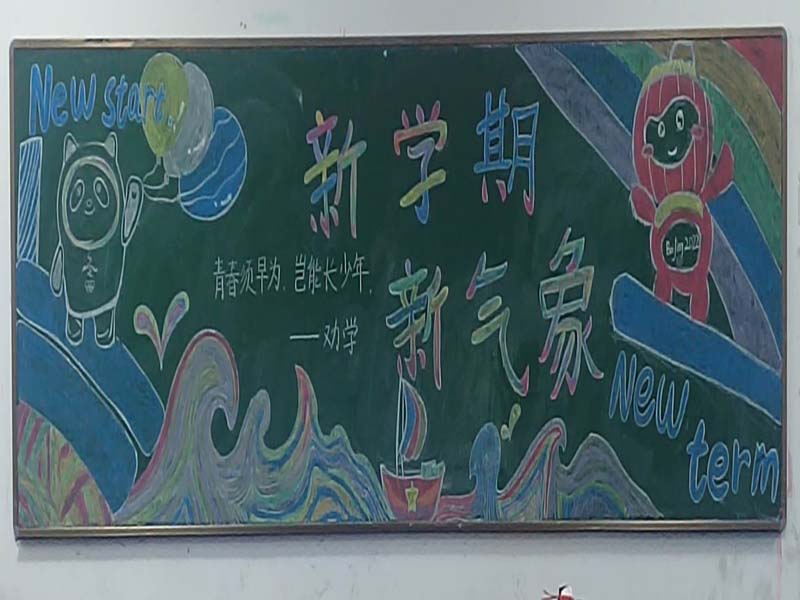 New start.
新学期
新气象
青春须早为，岂能长少年。
——劝学
Beijing 2022
New
term